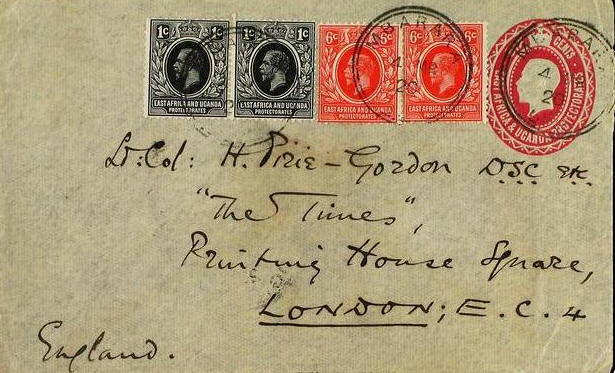 1c 1c 1c 1c 6c 6c 6c 6c
EAST AFRICA AND UGANDA PROTECTORATES
EAST AFRICA AND UGANDA PROTECTORATES
EAST AFRICA AND UGANDA PROTECTORATES
EAST AFRICA AND UGANDA PROTECTORATES
CENTS
AFRICA & UGANDA PROTECTORATES
MBARARA
4
20
MBARARA
4
20
Lt: Col: H. Pirie-Gordon DSC etc
"The Times",
Printing House Square,
LONDON; E.C. 4
England.